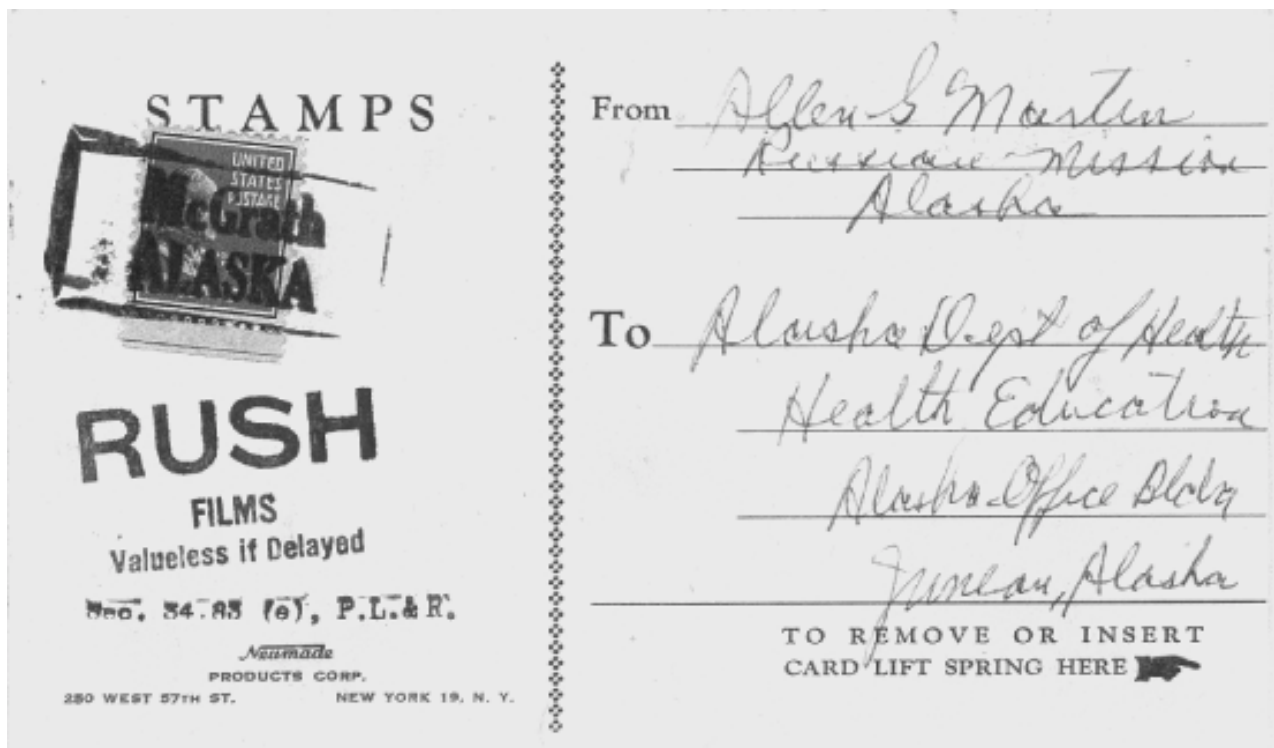 STAMPS
UNITED
STATES
POSTAGE
McGrath
ALASKA
RUSH
FILMS
Valueless if Delayed
Sec. 34.83 (e), P.L.& R.
Neumade
PRODUCTS CORP.
250 WEST 57TH ST. NEW YORK 19, N. Y.
From Allen G Martin
Russian Mission
Alaska
To Alaska Dept of Health
Health Education
Alaska Office Bldg
Juneau, Alaska
TO REMOVE OR INSERT
CARD LIFT SPRING HERE